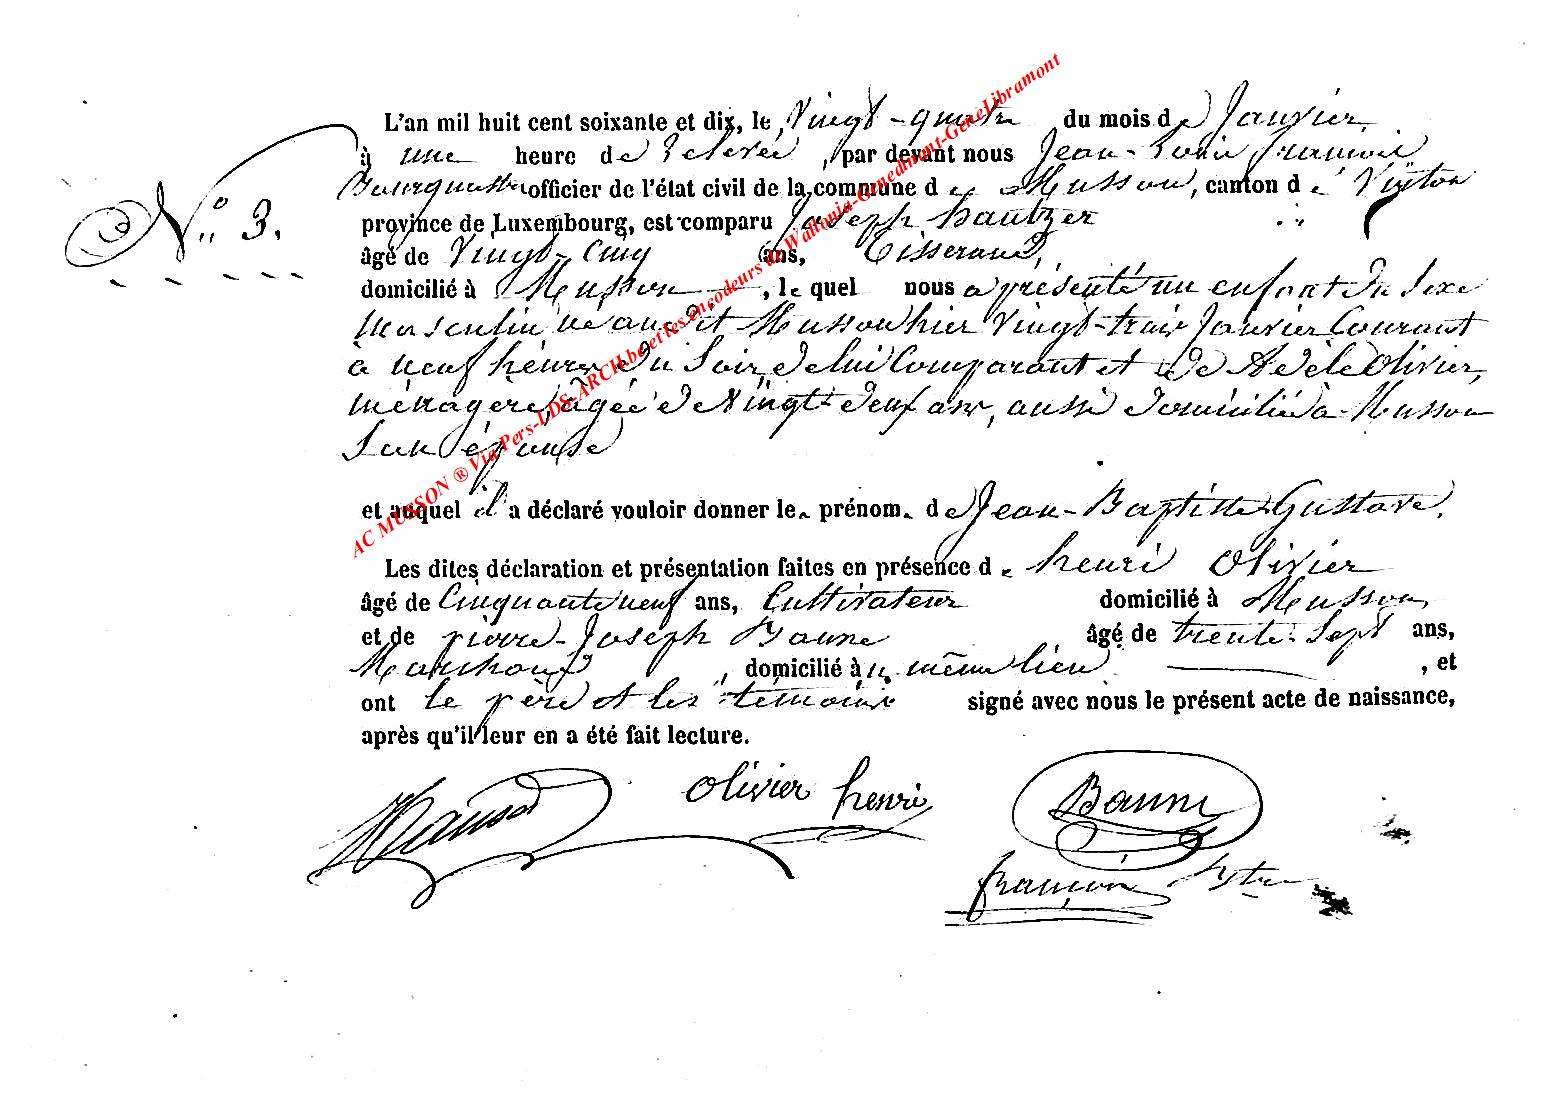 L'an mil huit cent soixante et dix, le Vingt-quatre du mois de Janvier
à une heure de relevée, par devant nous Jean-Louis François
Bourgmestre officier de l'état civil de la commune de Musson, canton de Virton
N° 3.
province de Luxembourg, est comparu Joseph hautzer
âgé de Vingt-Cinq ans, Tisserand,
domicilié à Musson, lequel nous a présenté un enfant du Sexe
Masculin né audit Musson hier Vingt-trois Janvier Courant
à neuf heures du Soir, de lui Comparant et de Adèle Olivier,
ménagère, âgée de Vingt-deux ans, aussi domiciliée à Musson
Son épouse
et auquel il a déclaré vouloir donner les prénoms de Jean-Baptiste Gustave.
Les dites déclaration et présentation faites en présence de henri Olivier
âgé de Cinquante neuf ans, Cultivateur domicilié à Musson
et de pierre-Joseph Baune âgé de trente-Sept ans,
Marchand, domicilié au même lieu, et
ont le père et les témoins signé avec nous le présent acte de naissance,
après qu'il leur en a été fait lecture.
olivier henri
Baune
françois
AC MUSSON ® Via Pers-LDS-ARCH.be et les encodeurs de Wallonia-Genedinant-GeneLibramont